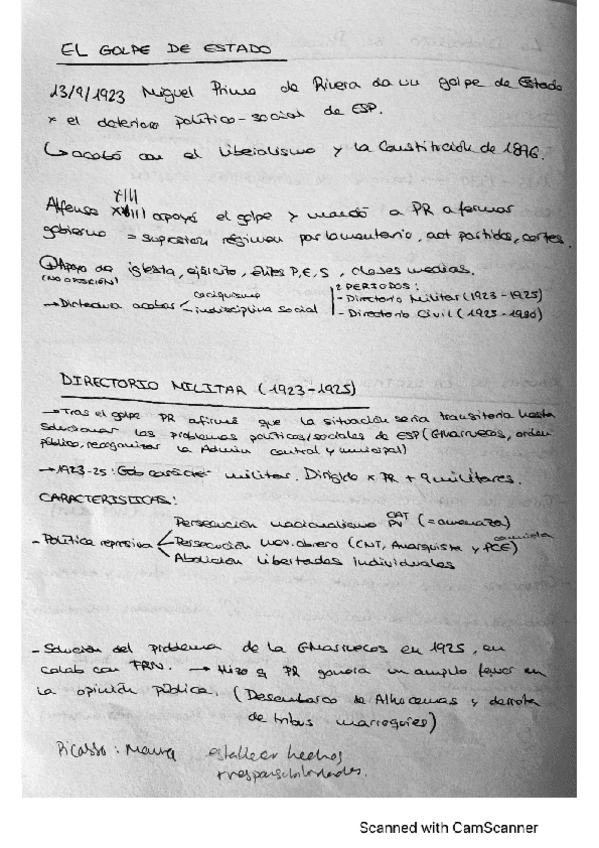 EL GOLPE DE ESTADO
13/9/1923 Miguel Primo de Rivera da un golpe de Estado
x el deterioro político-social de ESP.
↳ acabó con el liberalismo y la Constitución de 1896.
XIII
Alfonso XVIII apoyó el golpe y mandó a PR a formar
gobierno = supresión régimen parlamentario, act partidos, cortes.
Apoyo de iglesia, ejército, élites P,E,S, clases medias.
(NO OPOSICIÓN)
→ Dictadura acabar caciquismo
indisciplina social
2 PERIODOS:
- Directorio Militar (1923-1925)
- Directorio Civil (1925-1930)
DIRECTORIO MILITAR (1923-1925)
→ Tras el golpe PR afirmó que la situación sería transitoria hasta
solucionar los problemas políticos/sociales de ESP (GMarruecos, orden
público, reorganizar la Admin central y municipal)
→ 1923-25: Gob carácter militar. Dirigido x PR + 9 militares.
CARACTERÍSTICAS:
- Política represiva
Persecución nacionalismo CAT PV (= amenaza)
Persecución mov. obrero (CNT, Anarquista y PCE)
Abolición libertades individuales
- Solución del problema de la GMarruecos en 1925, en
colab con FRN. → Hizo q PR ganara un amplio favor en
la opinión pública. (Desembarco de Alhucemas y derrota
de tribus marroquíes)
Picasso: Maura establecer hechos
responsabilidades.
Scanned with CamScanner